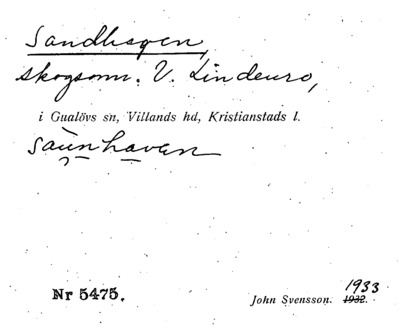 Sandhagen,
skogsomr. V. Lindeuro,
i Gualövs sn, Villands hd, Kristianstads l.
saunhaven
Nr 5475.
John Svensson. 1932. 1933